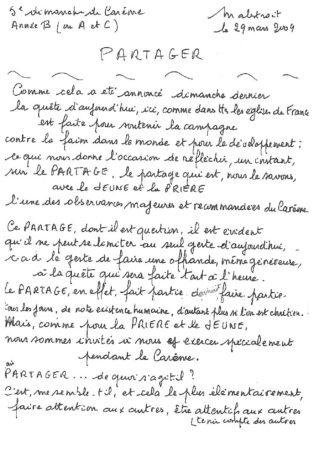 5e dimanche de Carême
Malestroit
Année B (ou A et C)
le 29 mars 2009
PARTAGER
Comme cela a été annoncé dimanche dernier
la quête d'aujourd'hui, ici, comme dans ttes les églises de France
est faite pour soutenir la campagne
contre la faim dans le monde et pour le développement ;
ce qui nous donne l'occasion de réfléchir, un instant,
sur le PARTAGE, le partage qui est, nous le savons,
avec le JEUNE et la PRIÈRE
l'une des observances majeures et recommandées du Carême
Ce PARTAGE, dont il est question, il est évident
qu'il ne peut se limiter au seul geste d'aujourd'hui,
c.a.d le geste de faire une offrande, même généreuse,
à la quête qui sera faite tout à l'heure.
Le PARTAGE, en effet, fait partie devrait faire partie
tous les jours, de notre existence humaine, d'autant plus si l'on est chrétien.
Mais, comme pour la PRIERE et le JEUNE,
nous sommes invités à nous y exercer spécialement
pendant le Carême.
PARTAGER ... de quoi s'agit-il ?
C'est, me semble-t-il, et cela le plus élémentairement,
faire attention aux autres, être attentifs aux autres
tenir compte des autres